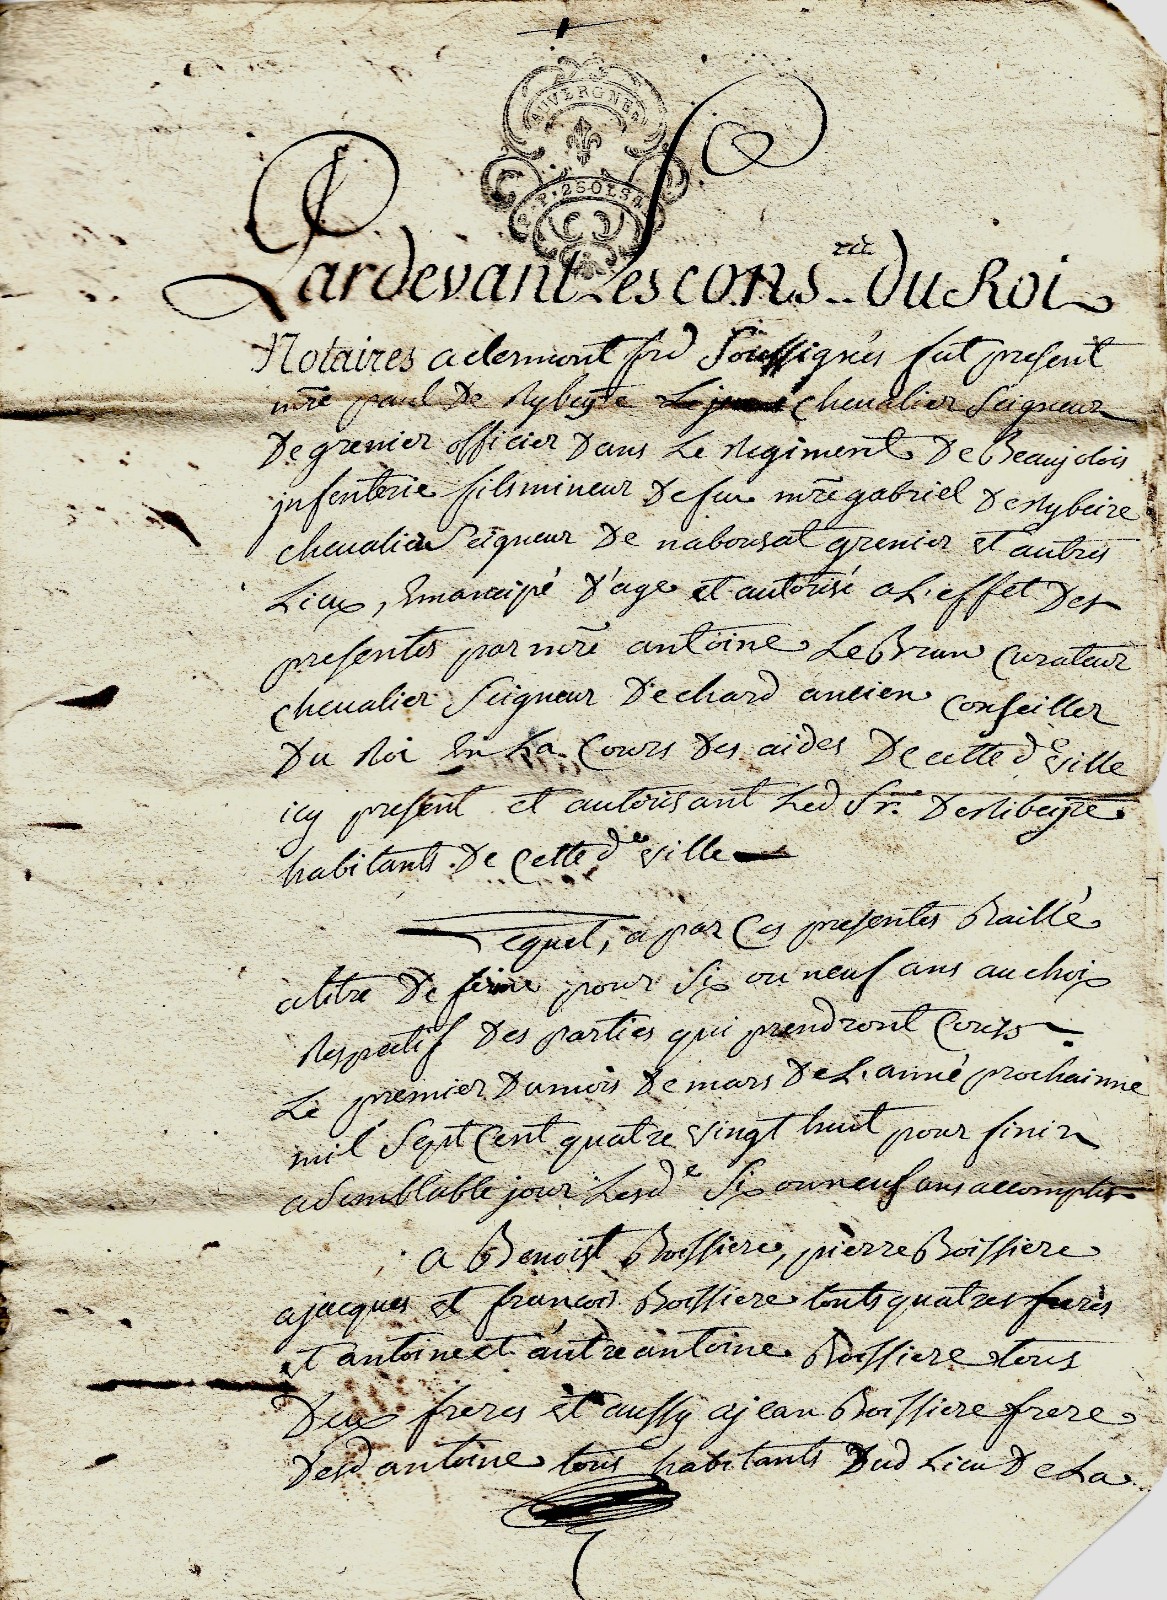 AUVERGNE
P. 2SOLS 4
Pardevant Les cons.ers du Roi
Notaires a clermont ferd Soussignés fut present
mre paul De Rybeyre chevalier Seigneur
De grenier officier Dans Le Regiment De Beaujolois
infenterie fils mineur De feu mre gabriel De Rybeire
chevalier Seigneur De nabousat grenier et autres
Lieux, Emancipé D'age et autorisé a L'effet Des
presentes par mre antoine Le Brun Curateur
chevalier Seigneur Dechard ancien Conseiller
Du Roi En La Cours Des aides De cette de ville
icy present et autorisant Led Sr. De Ribeyre
habitants De Cette de ville
Lequel, a par Ces presentes Baillé
a titre De ferme pour Six ou neuf ans au choix
Respectif Des parties qui prendront Cours
Le premier Du mois De mars De L'anné prochainne
mil Sept Cent quatre vingt huit pour finir
a Semblable jour Lesde Six ou neuf ans accomplis
a Benoist Boissiere, pierre Boissiere
a jacques et francois Boissiere touts quatres freres
et antoine et autre antoine Boissiere tous
Deux freres et aussy a jean Boissiere frere
Desd antoine tous habitants Dud Lieu De La